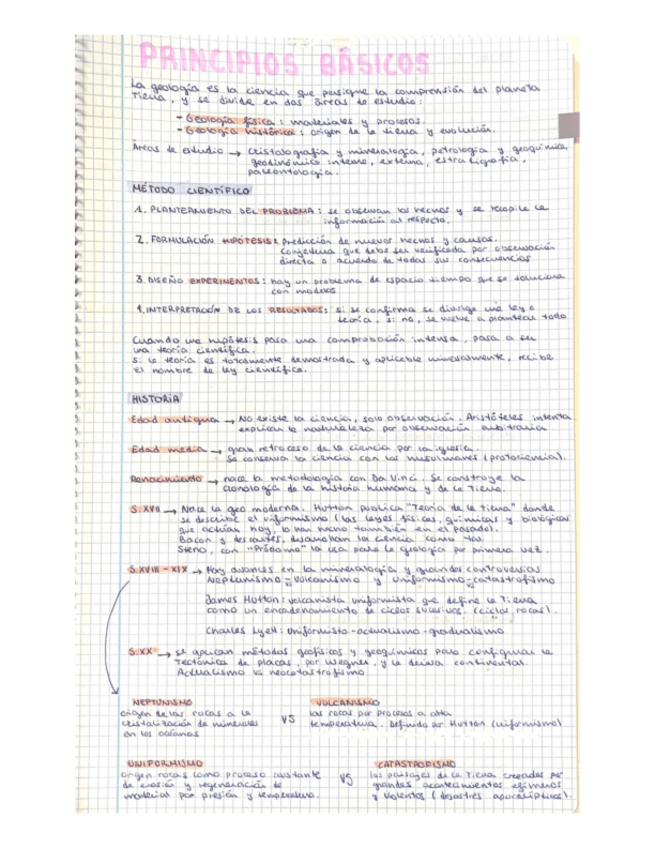 PRINCIPIOS BÁSICOS
La geología es la ciencia que persigue la comprensión del planeta
Tierra, y se divide en dos áreas de estudio:
- Geología física: materiales y procesos.
- Geología histórica: origen de la tierra y evolución.
Áreas de estudio → Cristalografía y mineralogía, petrología y geoquímica
geodinámica interna, externa, estratigrafía,
paleontología.
MÉTODO CIENTÍFICO
1. PLANTEAMIENTO DEL PROBLEMA: se observan los hechos y se recopila la
información al respecto.
2. FORMULACIÓN HIPÓTESIS: predicción de nuevos hechos y causas.
Conjetura que debe ser verificada por observación
directa o acuerdo de todas sus consecuencias
3. DISEÑO EXPERIMENTOS: hay un problema de espacio tiempo que se soluciona
con modelos
4. INTERPRETACIÓN DE LOS RESULTADOS: si se confirma se divulga una ley o
teoría, si no, se vuelve a plantear todo
Cuando una hipótesis pasa una comprobación intensa, pasa a ser
una teoría científica.
Si la teoría es totalmente demostrada y aplicable universalmente, recibe
el nombre de ley científica.
HISTORIA
Edad antigua → No existe la ciencia, solo observación. Aristóteles intenta
explicar la naturaleza por observación arbitraria
Edad media → gran retroceso de la ciencia por la iglesia.
Se conserva la ciencia con los musulmanes (protociencia).
Renacimiento → nace la metodología con Da Vinci. Se construye la
cronología de la historia humana y de la Tierra.
S.XVII → Nace la geo moderna. Hutton publica "Teoría de la Tierra" donde
se describe el uniformismo (las leyes físicas, químicas y biológicas
que actúan hoy, lo han hecho también en el pasado).
Bacon y descartes, desarrollan la ciencia como tal.
Steno, con "Pródomo" la usa para la geología por primera vez.
S.XVIII - XIX → Hay avances en la mineralogía y grandes controversias
Neptunismo-vs-Vulcanismo y uniformismo-vs-catastrofismo
James Hutton: vulcanista uniformista que define la Tierra
como un encadenamiento de ciclos sucesivos. (ciclos rocas).
Charles Lyell: uniformista-actualismo-gradualismo
S.XX → se aplican métodos geofísicos y geoquímicos para configurar la
Tectónica de placas, por Wegner, y la deriva continental.
Actualismo vs neocatastrofismo
NEPTUNISMO VS VULCANISMO
origen de las rocas a la
cristalización de minerales
en los océanos
las rocas por procesos a alta
temperatura. Definido por Hutton (uniformismo)
UNIFORMISMO VS CATASTROFISMO
origen rocas como proceso constante
de erosión y regeneración de
material por presión y temperatura.
los paisajes de la Tierra creados por
grandes acontecimientos efímeros
y violentos (desastres apocalípticos).